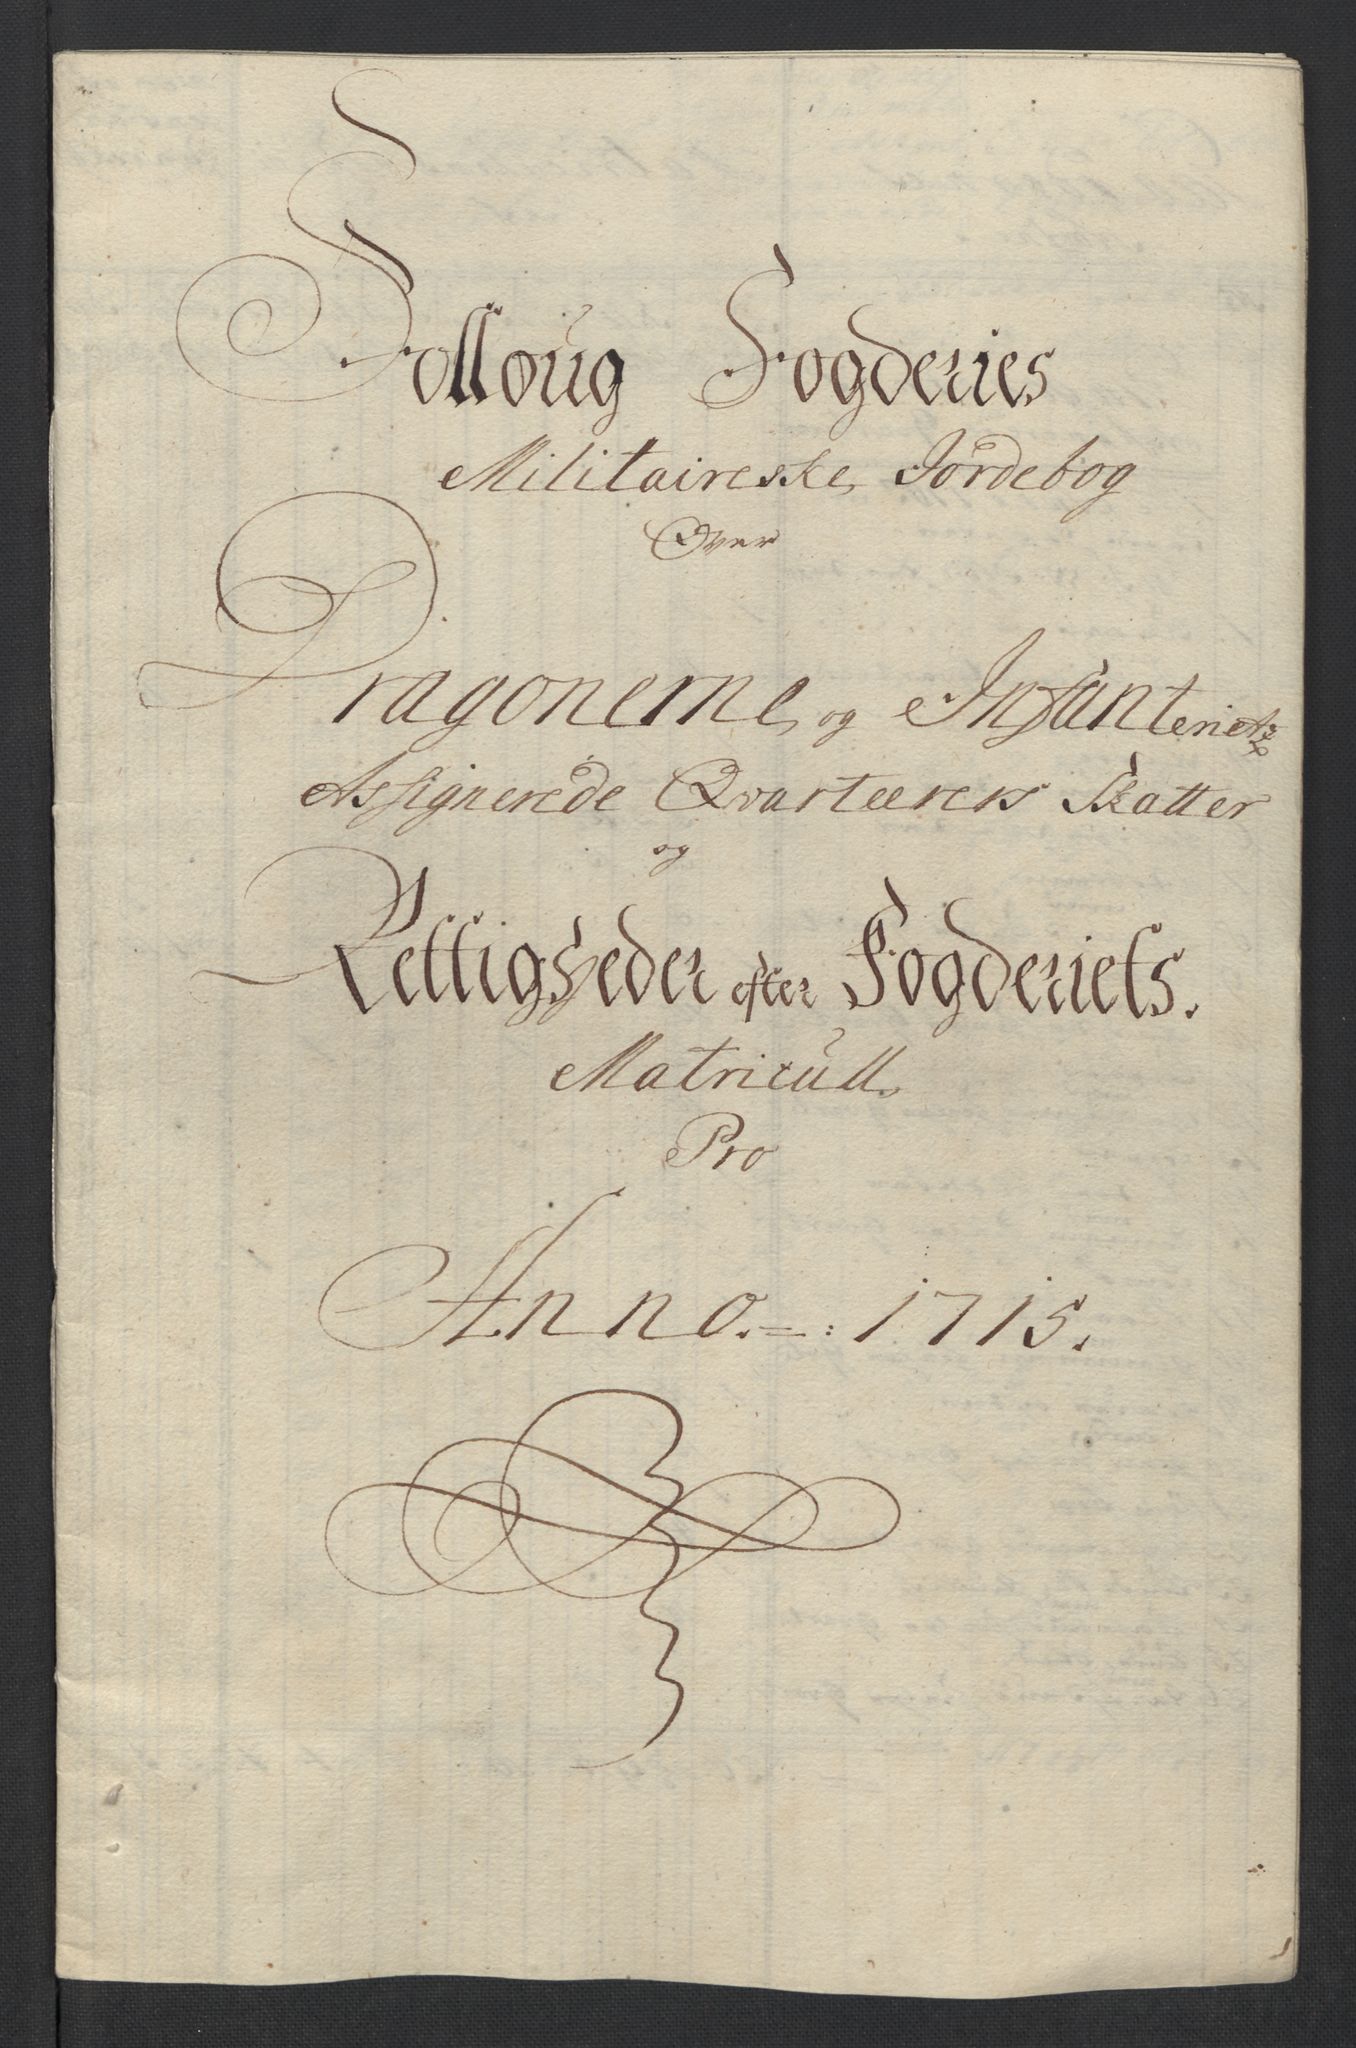 Folloug Fogderies
Militaireske Jordebog
Over
Dragonerne og Infanteriets
Assignerede Qvarteerers Skatter
og
Rettigheder efter Fogderiets.
Matricull
Pro
Anno.=: 1715.